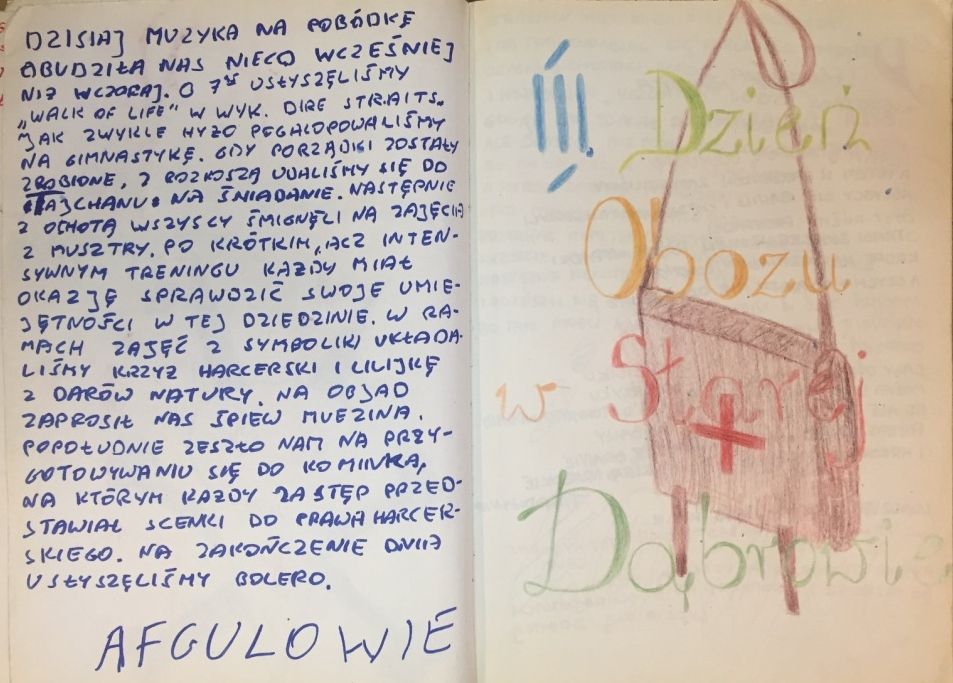 DZISIAJ MUZYKA NA POBÓDKĘ
OBUDZIŁA NAS NIECO WCZEŚNIEJ
NIŻ WCZORAJ. O 7⁴⁵ USŁYSZĘLIŚMY
„WALK OF LIFE" W WYK. DIRE STRAITS.
JAK ZWYKLE HYŻO POGALOPOWALIŚMY
NA GIMNASTYKĘ. GDY PORZĄDKI ZOSTAŁY
ZROBIONE, Z ROZKOSZĄ UDALIŚMY SIĘ DO
AJCHANU NA ŚNIADANIE. NASTĘPNIE
Z OCHOTĄ WSZYSCY ŚMIGNĘLI NA ZAJĘCIA
Z MUSZTRY. PO KRÓTKIM, ACZ INTEN-
SYWNYM TRENINGU KAŻDY MIAŁ
OKAZJĘ SPRAWDZIĆ SWOJE UMIE-
JĘTNOŚCI W TEJ DZIEDZINIE. W RA-
MACH ZAJĘĆ Z SYMBOLIKI UKŁADA-
LIŚMY KRZYŻ HARCERSKI I LILIJKĘ
Z DARÓW NATURY. NA OBJAD
ZAPROSIŁ NAS ŚPIEW MUEZINA.
POPOŁUDNIE ZESZŁO NAM NA PRZY-
GOTOWYWANIU SIĘ DO KOMINKA,
NA KTÓRYM KAŻDY ZASTĘP PRZED-
STAWIAŁ SCENKI DO PRAWA HARCER-
SKIEGO. NA ZAKOŃCZENIE DNIA
USŁYSZĘLIŚMY BOLERO.
AFGULOWIE
III Dzień
Obozu
w Starej
Dąbrowie